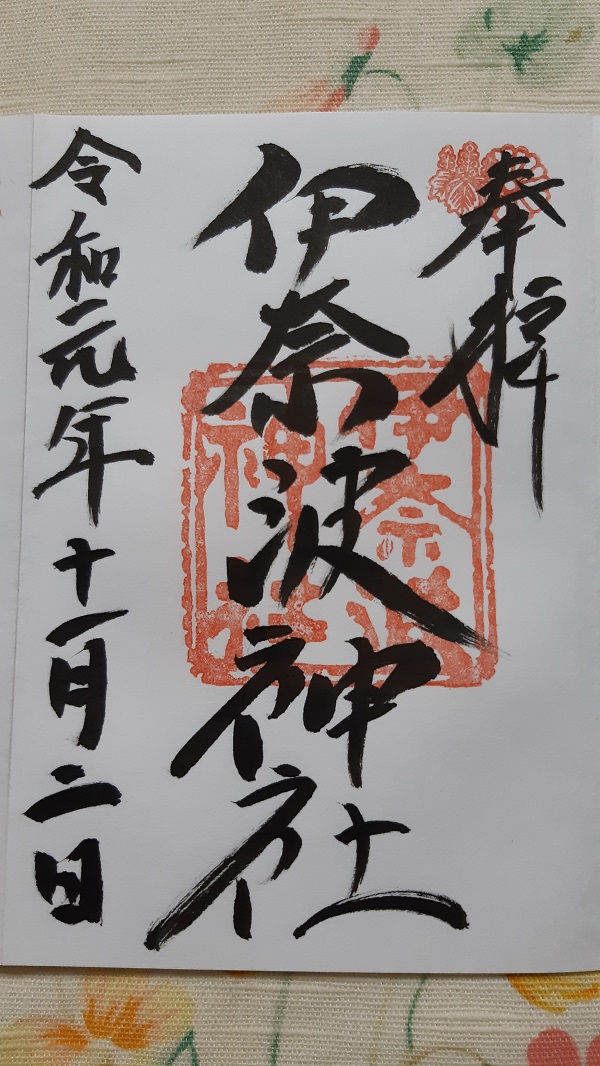 奉拝
伊奈波神社
伊奈波
神社
令和元年十一月二日